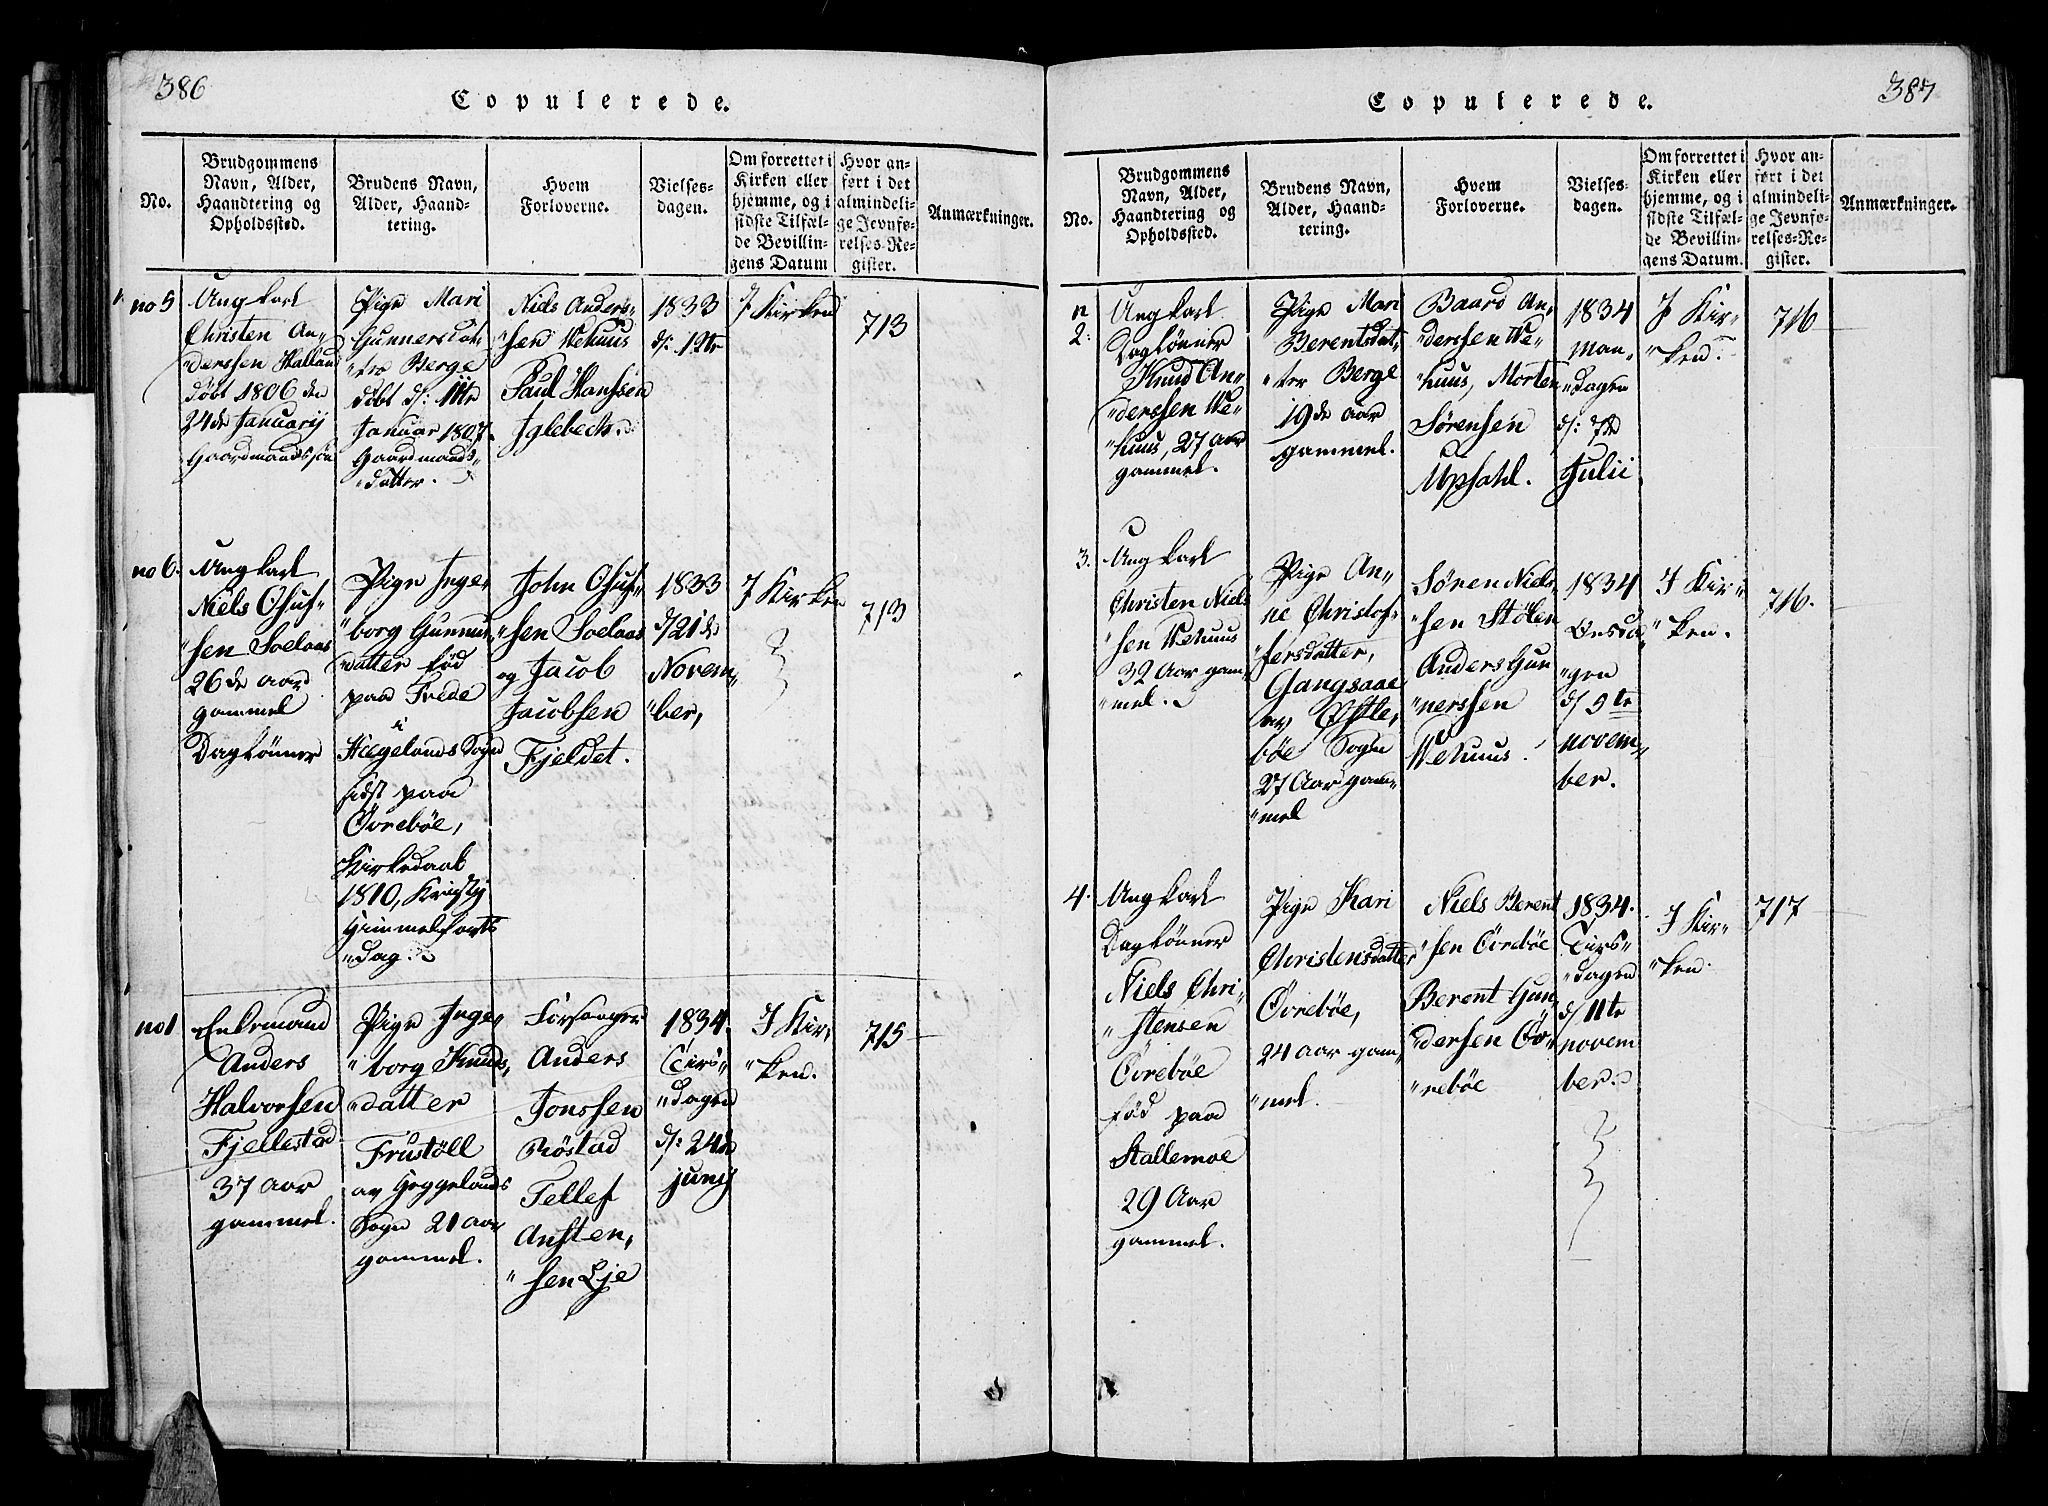 386
Copulerede.
No.
Brudgommens
Navn, Alder,
Haandtering og
Opholdssted.
Brudens Navn,
Alder, Haand-
tering.
Hvem
Forloverne.
Vielses-
dagen.
Om forrettet i
Kirken eller
hjemme, og i
sidste Tilfæl-
de Bevillin-
gens Datum
Hvor an-
ført i det
almindeli-
ge Jevnfø-
relses-Re-
gister.
Anmærkninger.
no 5
Ungkarl
Christen An-
derssen Halland
døbt 1806 den
24de Januarij
Gaardmandssøn
Pige Mari
Gunnersdat-
"ter Berge
døbt d: 11te
Januar 1807.
Gaardmands-
"datter.
Niels Anders-
"sen Wehuus
Paul Hanssen
Iglebech.
1833
d: 12te
J Kirken
713
no 6.
Ungkarl
Niels Osuf-
"sen Soelaas
26de aar
gammel
Daglønner
Pige Inge-
"borg Gunnus-
"datter fød
paa Frede
i
Hægelands Sogn
sidst paa
Øvrebøe,
Kirkedaab
1810, Kristj
Himmelfarts
"dag.
John Osuf-
"sen Soelaas
og Jacob
Jacobsen
Fjeldet.
1833
d/21de
Novem-
"ber,
J Kirken
713
no 1
Enkemand
Anders
Halvorsen
Fjellestad
37 aar
gammel.
Pige Inge-
"borg Knuds-
"datter
Frustøll
av Heggelands
Sogn 21 aar
gammel.
Forsanger
Anders
Jonssen
Røstad
Tellef
Ansten-
"sen Lje
1834.
Tirs-
"dagen
d: 24de
junij
J Kir-
"ken.
715
387
Copulerede.
No.
Brudgommens
Navn, Alder,
Haandtering og
Opholdssted.
Brudens Navn,
Alder, Haand-
tering.
Hvem
Forloverne.
Vielses-
dagen.
Om forrettet i
Kirken eller
hjemme, og i
sidste Tilfæl-
de Bevillin-
gens Datum.
Hvor an-
ført i det
almindeli-
ge Jevnfø-
relses-Re-
gister.
Anmærkninger.
n
2.
Ungkarl
Daglønner
Knud An-
"derssen We-
"huus, 27 aar
gammel.
Pige Mari
Berentsdat-
"ter Berge
19de aar
gammel.
Baard An-
derssen We-
"huus, Morten
Sørensen
Upsahl.
1834
Man-
"dagen
d: 7de
Julii
J Kir-
"ken.
716
3.
Ungkarl
Christen Niels
"sen Wehuus
32 Aar gam-
"mel.
Pige An-
ne Christof-
"fersdatter,
Gangsaae
av Østle-
bøe Sogn
27 Aar gam-
"mel
Søren Niels-
"sen Stølen
Anders Gun
"nerssen
Wehuus.
1834
Onsda-
"gen
d/ 5te
novem-
ber.
J Kir-
"ken.
716.
4.
Ungkarl
Daglønner
Niels Chri-
"stensen
Øvrebøe
fød paa
Stallemoe
29 Aar
gammel.
Pige Kari
Christensdatter
Øvrebøe,
24 aar gam-
"mel.
Niels Berent
"sen Øvrebøe
Berent Gun
"dersen Øv-
"rebøe
1834.
Tirs-
"dagen
d/ 11te
novem
ber.
J Kir-
"ken.
717